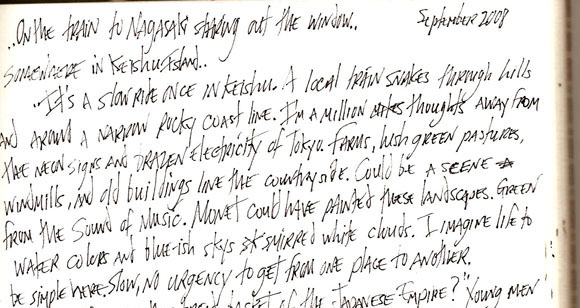 ..On the train to Nagasaki staring out the window.. September 2008
Somewhere in Keishu Island..
..It's a slow ride once in Keishu. A local train snakes through hills
and around a narrow rocky coast line. I'm a million thoughts away from
the neon signs and brazen electricity of Tokyo. Farms, lush green pastures,
windmills, and old buildings line the countryside. Could be a scene
from the Sound of Music. Monet could have painted these landscapes. Green
water colors and blue-ish skys stirred white clouds. I imagine life to
be simple here. Slow, no urgency to get from one place to another.
of the Japanese Empire? "Young men